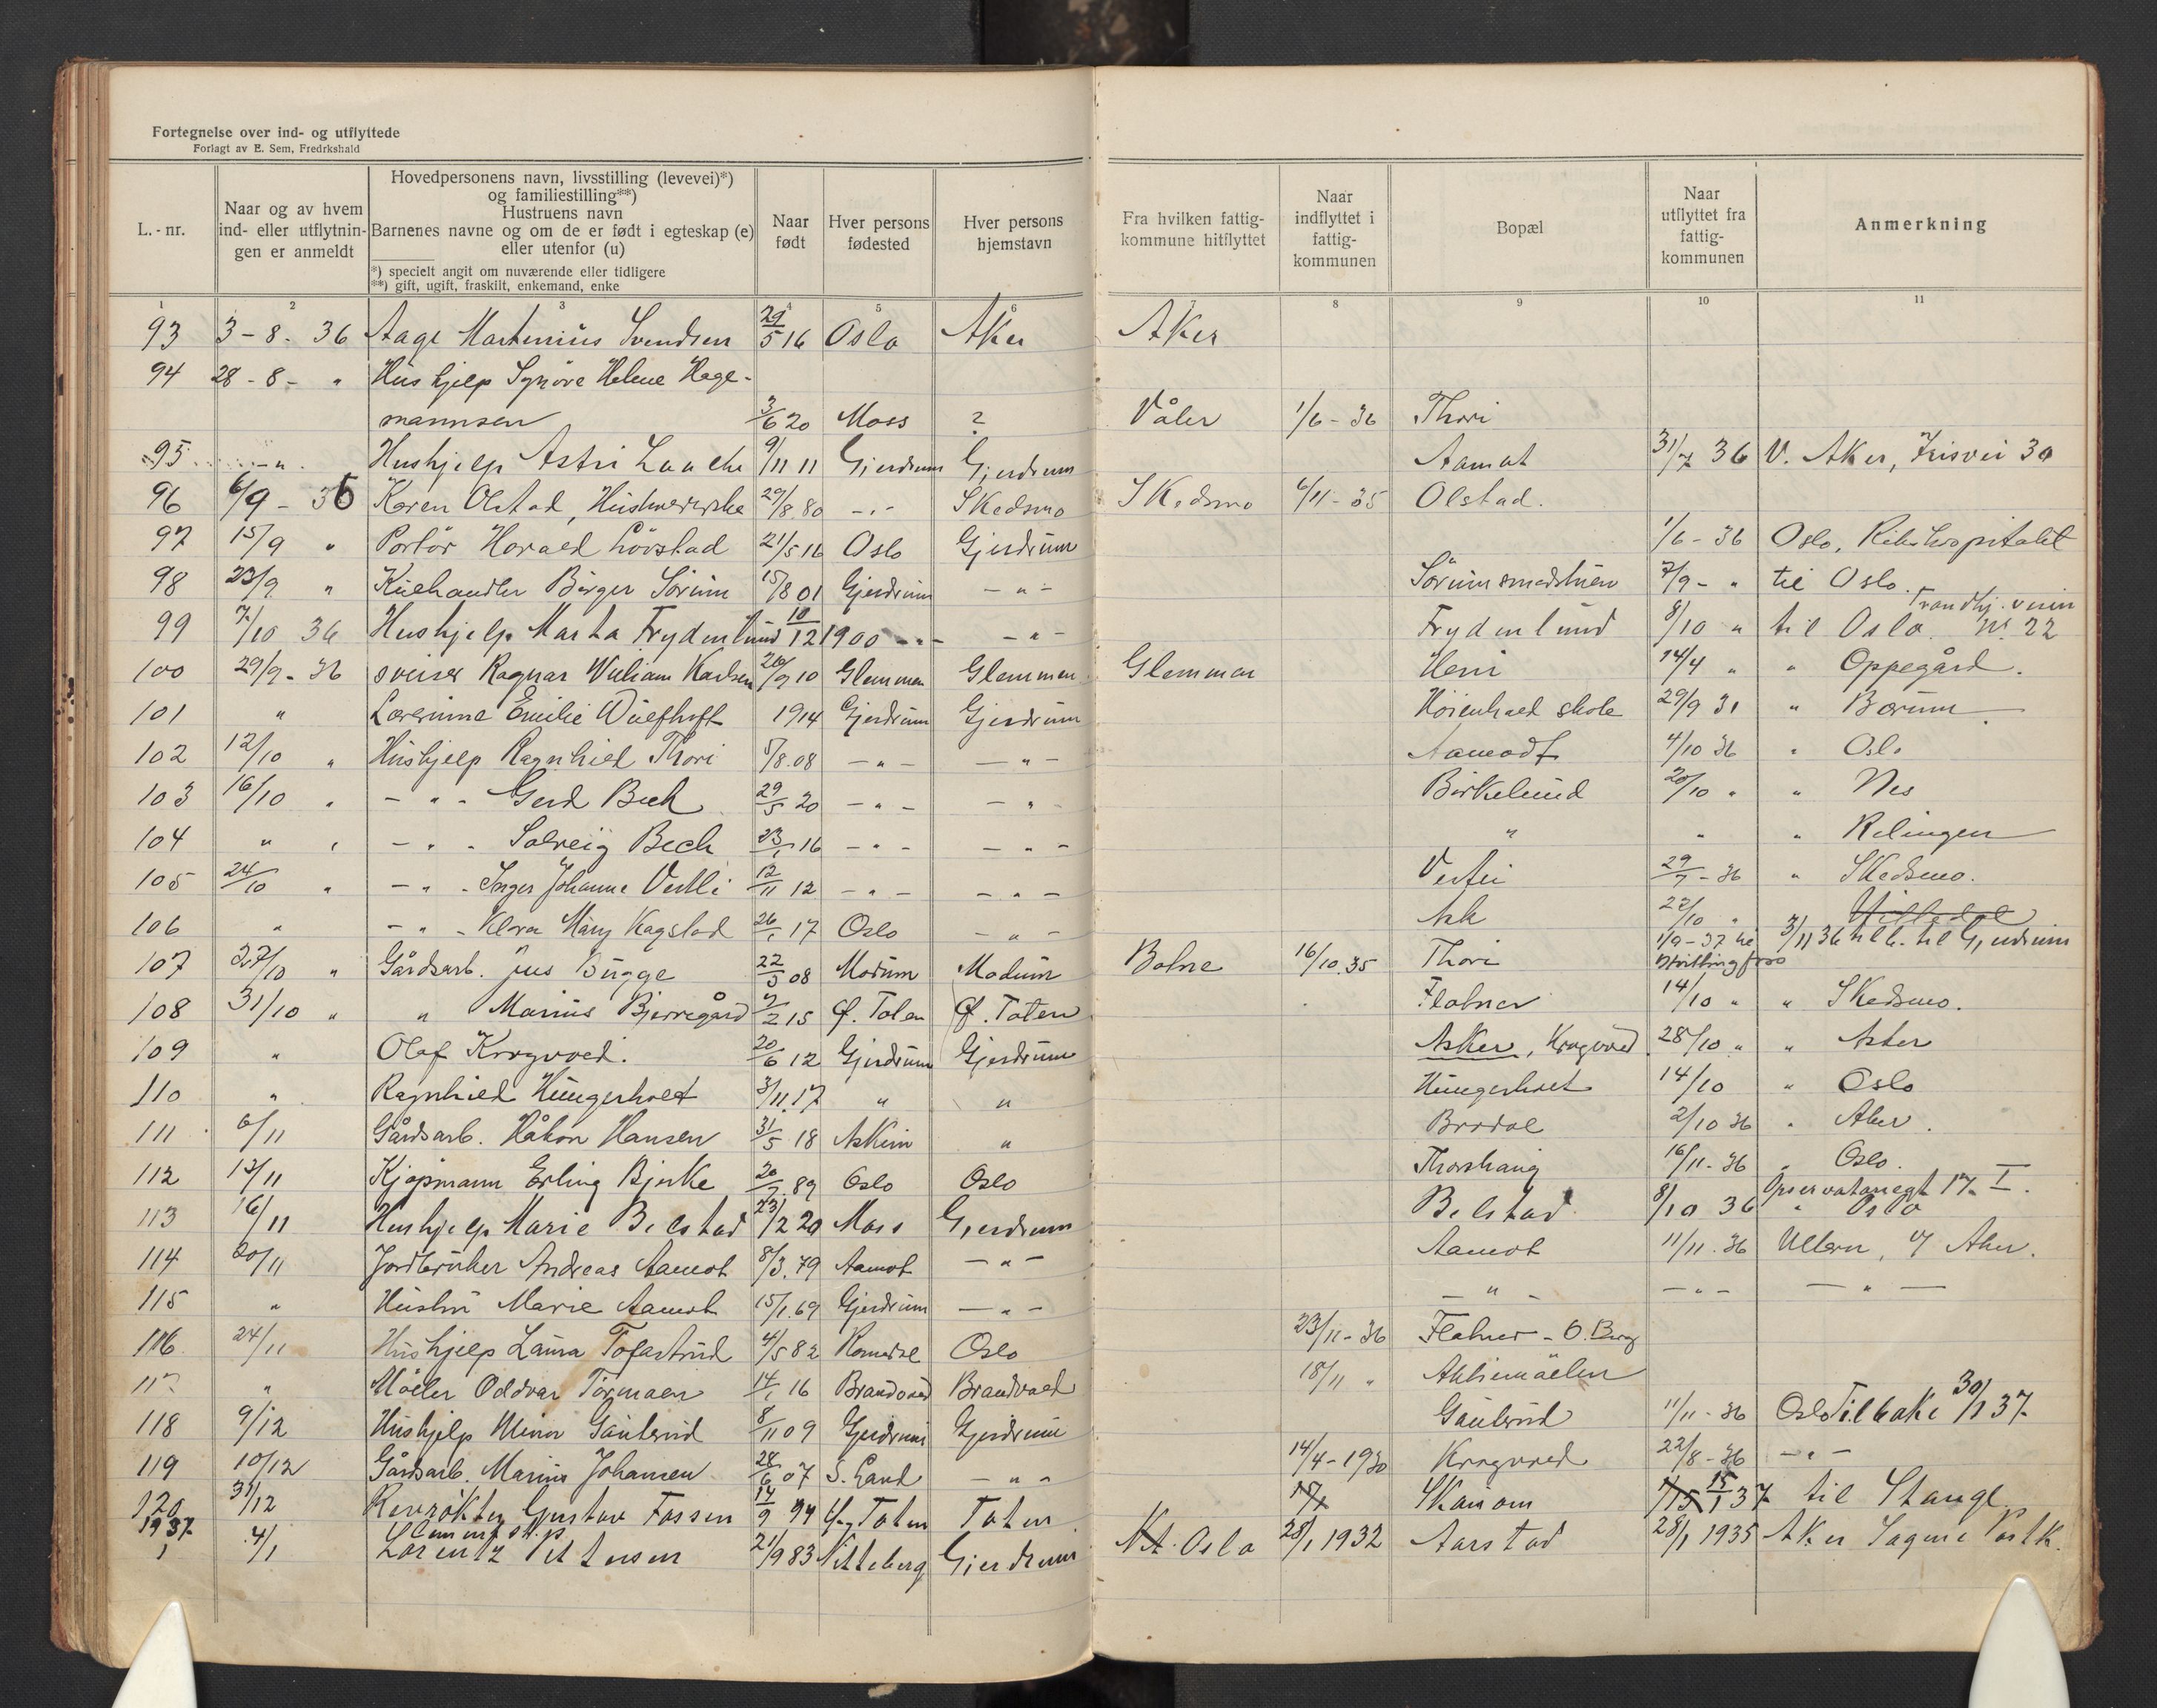 Fortegnelse over ind- og utflyttede
Forlagt av E. Sem, Fredrkshald
L.-nr. | Naar og av hvem ind- eller utflytnin- gen er anmeldt | Hovedpersonens navn, livsstilling (levevei)*) og familiestilling**) Hustruens navn Barnenes navne og om de er født i egteskap (e) eller utenfor (u) *) specielt angit om nuværende eller tidligere **) gift, ugift, fraskilt, enkemand, enke | Naar født | Hver persons fødested | Hver persons hjemstavn | Fra hvilken fattig- kommune hitflyttet | Naar indflyttet i fattig- kommunen | Bopæl | Naar utflyttet fra fattig- kommunen | Anmerkning
1 2 3 4 5 6 8 9 10 11
93 3-8-36 Aage Martinius Svendsen 29/5 16 Oslo Aker Aker
94 28-8- " Hushjelp Synöve Helene Hage-
mannsen 3/6 20 Moss ? Våler 1/6-36 Thori
95 -"- Hushjelp Astri Laache 9/11 11 Gjerdrum Gjerdrum Aamot 31/7 36 V. Aker, Irisvei 30
96 6/9-36 Karen Olstad, 29/8.80 -"- Skedsmo Skedsmo 6/11-35 Olstad.
97 15/9 " Portör Harald Lövstad 21/5 16 Oslo Gjerdrum 1/6-36 Oslo, Rikshospitalet
98 23/9 " Birger Sörum 15/8 01 Gjerdrum -"- Sörumsmedstuen 7/9- " til Oslo.
99 7/10 36 Hushjelp Marta Frydenlund 10/12 1900 -"- -"- Frydenlund 8/10 " til Oslo Nr. 22
100 29/9-36 sveiser Ragnar William Karlsen 26/9 10 Glemmen Glemmen Glemmen 14/4 " " Oppegård.
101 " Lærerinne Emilie 1914 Gjerdrum Gjerdrum skole 29/9 31 " Bærum
102 12/10 " Hushjelp Ragnhild Thori 5/8.08 -"- -"- Aamodt 4/10 36 " Oslo
103 16/10 " -"- Gerd Bech 29/5 20 -"- -"- Birkelund 20/10 " " Nes
104 " " -"- Solveig Bech 23/1 16 -"- -"- " " " Relingen
105 24/10 " -"- Inger Johanne Vestli 12/11 12 -"- -"- Vestli 29/7-36 " Skedsmo.
106 " -"- Klara Mary Kagstad 26/1 17 Oslo -"- Ask 22/10 " 3/11 36 tilb. til Gjerdrum
107 27/10 " Gårdsarb. Jens Bugge 22/5 08 Modum Modum Botne 16/10.35 Thori 1/9-37 til
108 31/10 " " Marius Bjerregård 2/2 15 Ø. Toten Ø. Toten Flatner 14/10 " " Skedsmo.
109 " Olaf Krogvold. 20/6 12 Gjerdrum Gjerdrum Asker, Krogvold 28/10 " " Asker
110 " Ragnhild Hungerholt 3/11.17 " " Hungerholt 14/10 " Oslo
111 6/11 Gårdsarb. Håkon Hansen 31/5 18 Askim " Brådal 2/10 36 " Aker.
112 13/11 Kjøpmann Erling Bjerke 20/7.89 Oslo Oslo Thorshaug 16/11-36 " Oslo.
113 16/11 Hushjelp Marie Belstad 23/12 20 Moss Gjerdrum Belstad 8/10 36 Opservatoriegt 17. I. " Oslo
114 20/11 Jordbruker Andreas Aamot 8/3.79 Aamot -"- Aamot 11/11.36 Ullern, V Aker.
115 " Hustru Marie Aamot 15/1.69 Gjerdrum -"- -"- -"- -"-
116 24/11 Hushjelp Laura Tofastrud 4/5 82 Romedal Oslo 23/11-36 Flatner - O. Berg
117 " Möller Oddvar Tormoen 14/1 16 Brandvold Brandvold 18/11 "
118 9/12 Hushjelp Gauterud 8/11 09 Gjerdrum Gjerdrum Gauterud 11/11-36 Oslo Tilbake 30/1 37
119 10/12 Gårdsarb. Marius Johansen 28/6 07 S. Land -"- 14/4-1930 Krogvold 22/8-36 -"-
120 31/12 Revrökter Gustav Fossen 14/9 Toten Toten Skanom 15/1 37 til Stange
1937
1 4/1 Lorentz Pettersen 21/9 83 Nitteberg Gjerdrum Oslo 28/1 1932 Aarstad 28/1 1935 Aker Sagene Postk.